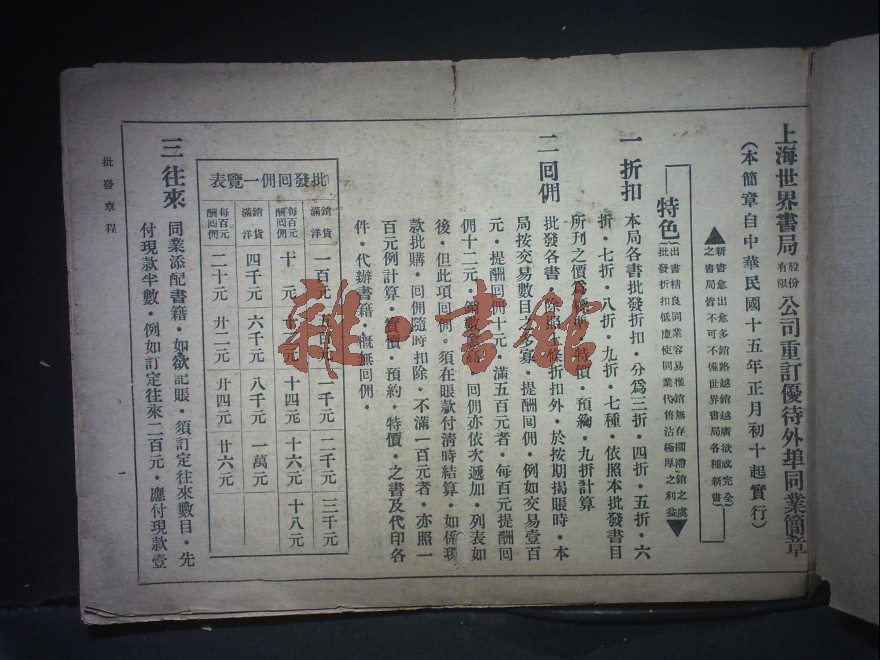 上海世界書局股份有限公司重訂優待外埠同業簡章
(本簡章自中華民國十五年正月初十起實行)
新書愈出愈多銷路越銷越廣欲成完全
之書局皆不可不備世界書局各種新書
特色
出書精良同業容易推銷無存擱滯銷之虞
批發折扣低廉使同業代售沾極厚之利益
一 折扣 本局各書批發折扣·分爲三折·四折·五折·六
折·七折·八折·九折·七種·依照本批發書目
所刊之價爲標準·特價·預約·九折計算
二 回佣 批發各書·除照上條折扣外·於按期揭賬時·本
局按交易數目之多寡·提酬回佣·例如交易壹百
元·提酬回佣十元·滿五百元者·每百元提酬回
佣十二元·回佣亦依次遞加·列表如
後·但此項回佣·須在賬款付清時結算·如係現
款批購·回佣隨時扣除·不滿一百元者·亦照一
百元例計算·實價·預約·特價·之書及代印各
件·代辦書籍·概無回佣·
批發回佣一覽表
銷貨滿洋 一百元 五百元 一千元 二千元 三千元
每百元酬回佣 十元 十二元 十四元 十六元 十八元
銷貨滿洋 四千元 六千元 八千元 一萬元
每百元酬回佣 二十元 廿二元 廿四元 廿六元
三 往來 同業添配書籍·如欲記賬·須訂定往來數目·先
付現款半數·例如訂定往來二百元·應付現款壹
批發章程
雜·書館